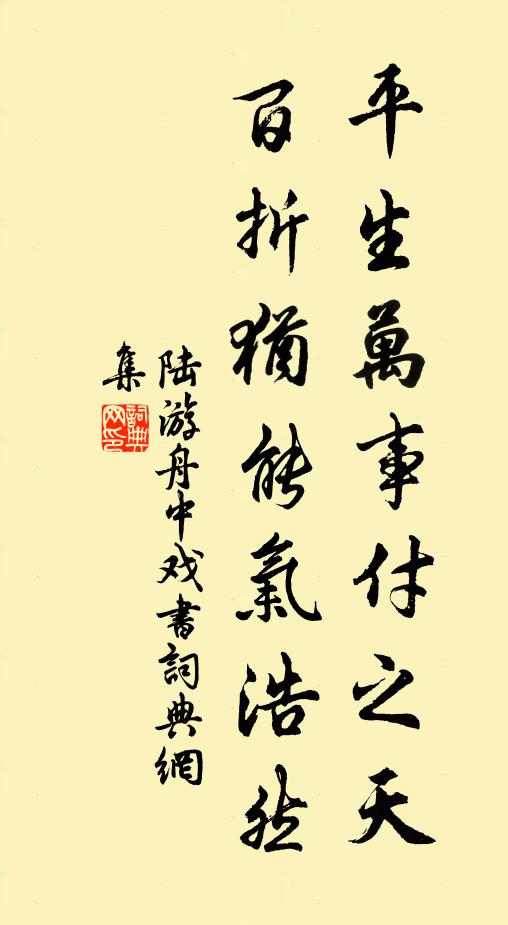 平生萬事付之天
百折猶能氣浩然
陆游舟中戏書詞典網
集
詞典网印